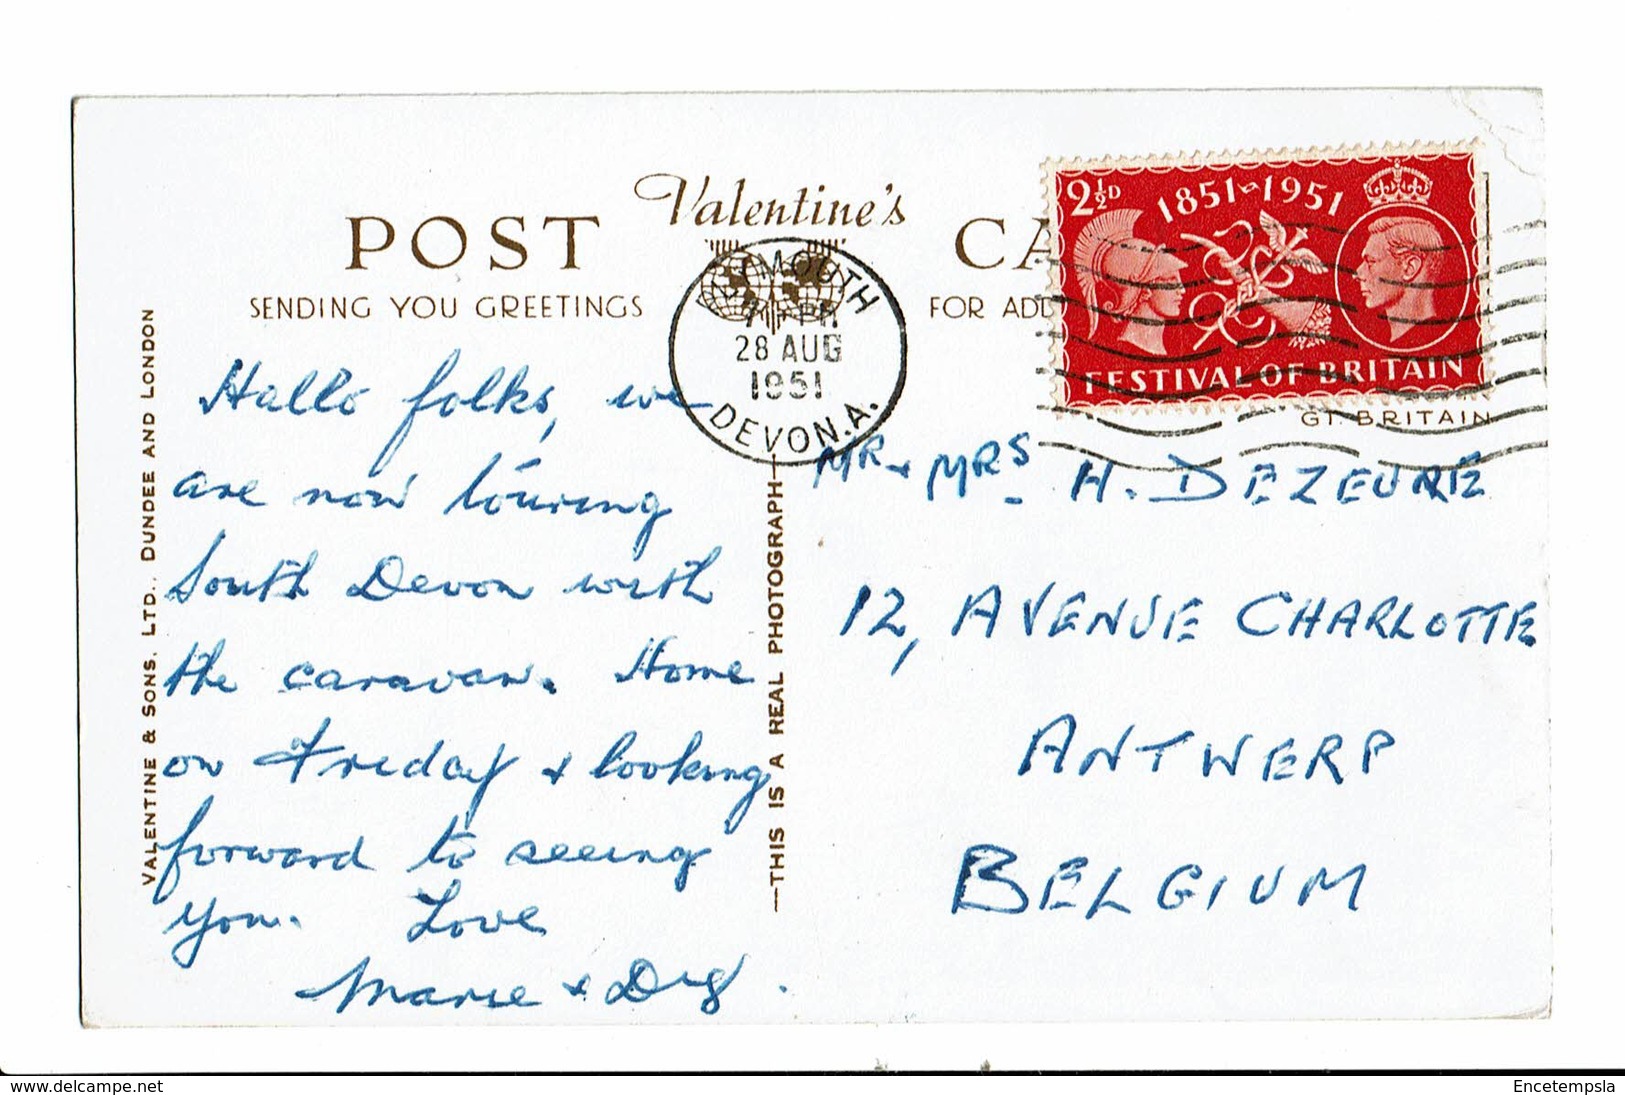 Valentine's
POST CA
SENDING YOU GREETINGS FOR ADD
PLYMOUTH
28 AUG
1951
DEVON.A.
2½D 1851~1951
FESTIVAL OF BRITAIN
GT. BRITAIN
VALENTINE & SONS, LTD., DUNDEE AND LONDON
Hallo folks, we
are now touring
South Devon with
the caravan. Home
on Friday & looking
forward to seeing
you. Love
Marie &
—THIS IS A REAL PHOTOGRAPH—
MR & MRS H. DEZEURE
12, AVENUE CHARLOTTE
ANTWERP
BELGIUM
www.delcampe.net Encetempsla